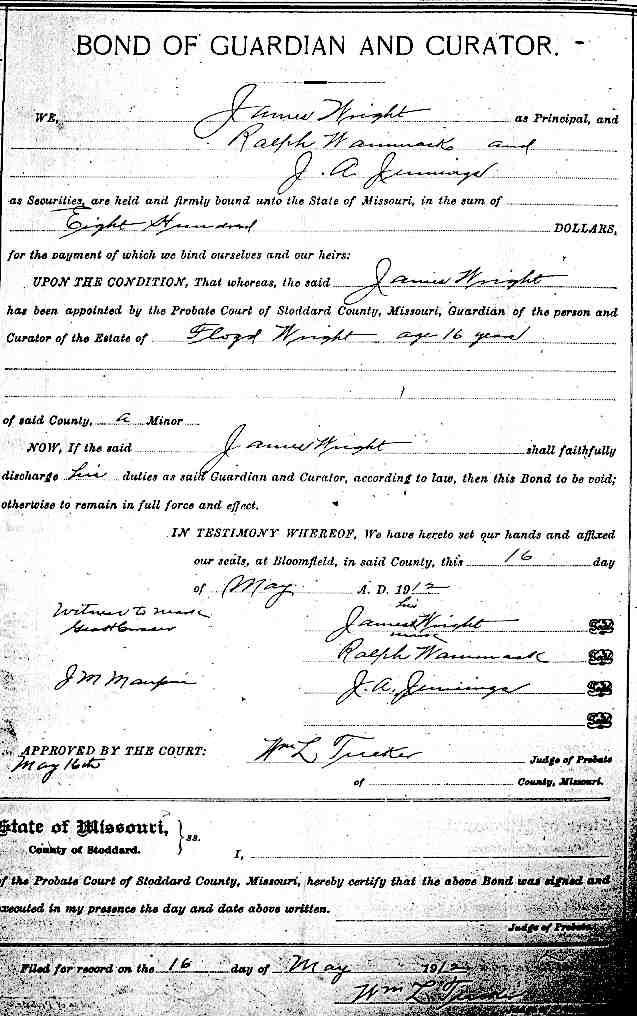 BOND OF GUARDIAN AND CURATOR.
WE, James Wright as Principal, and
Ralph Wammack and
J. A. Jennings
as Securities, are held and firmly bound unto the State of Missouri, in the sum of
Eight Hundred DOLLARS,
for the payment of which we bind ourselves and our heirs:
UPON THE CONDITION, That whereas, the said James Wright
has been appointed by the Probate Court of Stoddard County, Missouri, Guardian of the person and
Curator of the Estate of Floyd Wright age 16 years
of said County, a Minor
NOW, If the said James Wright shall faithfully
discharge his duties as said Guardian and Curator, according to law, then this Bond to be void;
otherwise to remain in full force and effect.
IN TESTIMONY WHEREOF, We have hereto set our hands and affixed
our seals, at Bloomfield, in said County, this 16 day
of May A. D. 1912
Witness to mark his
James Wright Seal
mark
Ralph Wammack Seal
J M Maupin J. A. Jennings Seal
Seal
APPROVED BY THE COURT: Wm L Tucker Judge of Probate
May 16th of County, Missouri.
State of Missouri, } ss.
County of Stoddard. I,
of the Probate Court of Stoddard County, Missouri, hereby certify that the above Bond was signed and
executed in my presence the day and date above written.
Judge of Probate
Filed for record on the 16 day of May 1912
Wm L Tucker
Judge of Probate